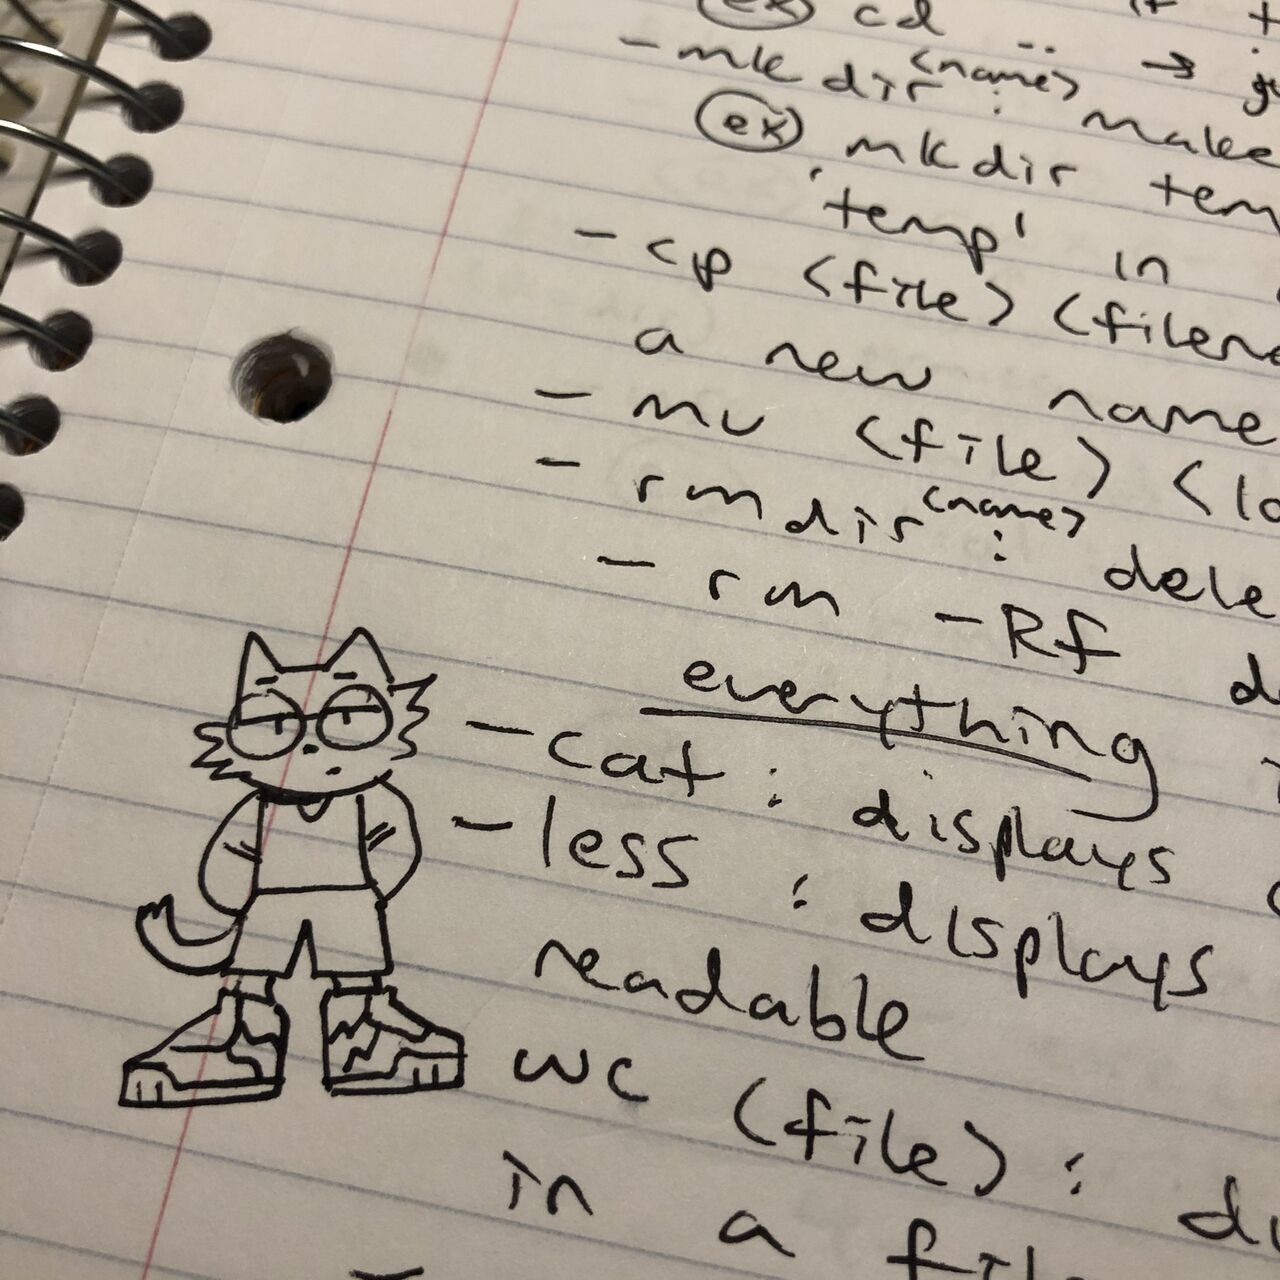 ex cd .. → 
- mkdir <name> : make
ex mkdir tem
'temp' in
- cp <file> <filen
a new name
- mv <file> <lo
- rmdir <name> : dele
- rm -Rf d
everything
- cat : displays
- less : displays
readable
wc <file> : d
in a fil